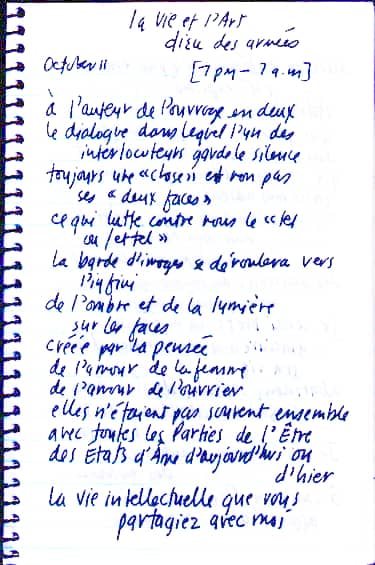 la vie et l'Art
dieu des armées
October 11 [7 pm – 7 a.m]
à l'auteur de l'ouvrage en deux
le dialogue dans lequel l'un des
interlocuteurs garde le silence
toujours une «close» et non pas
ses «deux faces»
ce qui lutte contre nous le «tel
ou/et tel»
la bande d'images se déroulera vers
l'infini
de l'ombre et de la lumière
sur les faces
créée par la pensée
de l'amour de la femme
de l'amour de l'ouvrier
elles n'étaient pas souvent ensemble
avec toutes les Parties de l'Être
des Etats d'Ame d'aujourd'hui ou
d'hier
la vie intellectuelle que vous
partagiez avec moi